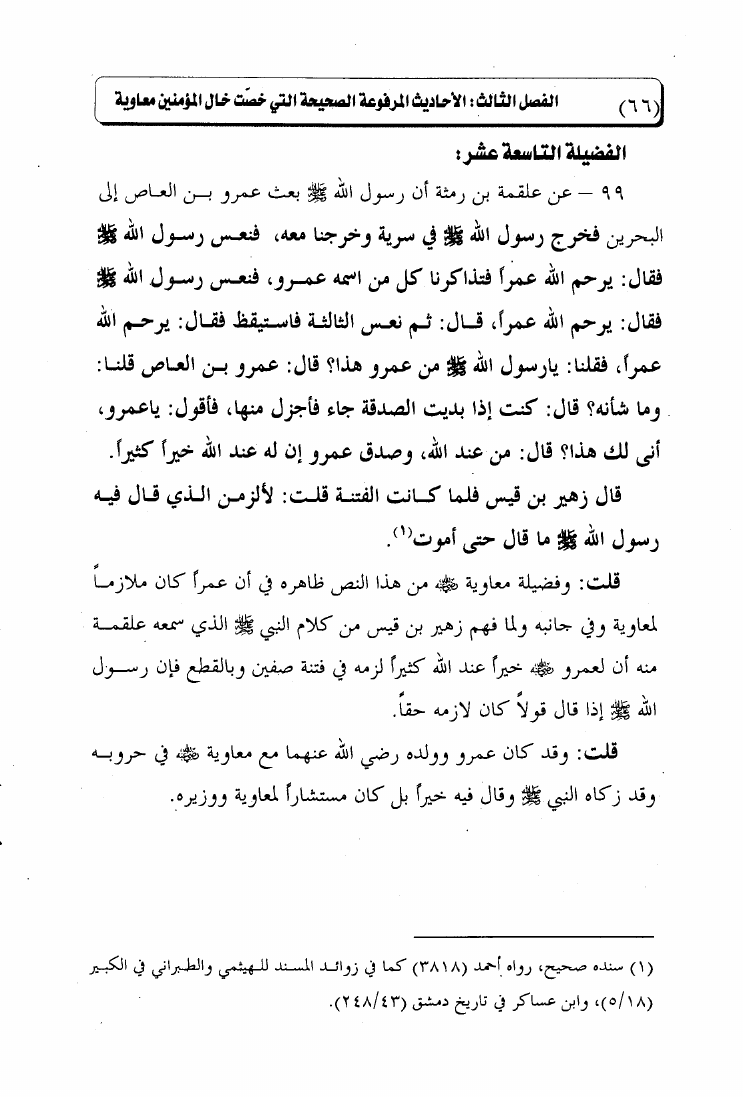 (٦٦) الفصل الثالث: الأحاديث المرفوعة الصحيحة التي خصّت خال المؤمنين معاوية
الفضيلة التاسعة عشر:
٩٩ – عن علقمة بن رمثة أن رسول الله ﷺ بعث عمرو بـن العـاص إلى
البحرين فخرج رسول الله ﷺ في سرية وخرجنا معه، فنعـس رسـول الله ﷺ
فقال: يرحم الله عمراً فتذاكرنا كل من اسمه عمـرو، فنعـس رسـول الله ﷺ
فقال: يرحم الله عمراً، قـال: ثـم نعـس الثالثـة فاستيقظ فقـال: يرحـم الله
عمراً، فقلنا: يارسول الله ﷺ من عمرو هذا؟ قال: عمرو بـن العـاص قلنـا:
وما شأنه؟ قال: كنت إذا بديت الصدقة جاء فأجزل منها، فأقول: ياعمرو،
أنى لك هذا؟ قال: من عند الله، وصدق عمرو إن له عند الله خيراً كثيراً.
قال زهير بن قيس فلما كـانت الفتنـة قلـت: لألزمـن الـذي قـال فيـه
رسول الله ﷺ ما قال حتى أموت(١).
قلت: وفضيلة معاوية ﷺ من هذا النص ظاهره في أن عمراً كان ملازمـاً
لمعاوية وفي جانبه ولما فهم زهير بن قيس من كلام النبي ﷺ الذي سمعه علقمـة
منه أن لعمرو ﷺ خيراً عند الله كثيراً لزمه في فتنة صفين وبالقطع فإن رسـول
الله ﷺ إذا قال قولاً كان لازمه حقاً.
قلت: وقد كان عمرو وولده رضي الله عنهما مع معاوية ﷺ في حروبـه
وقد زكاه النبي ﷺ وقال فيه خيراً بل كان مستشاراً لمعاوية ووزيره.
(١) سنده صحيح، رواه أحمد (٣٨١٨) كما في زوائـد المسند للـهيثمي والطبراني في الكبير
(٥/١٨)، وابن عساكر في تاريخ دمشق (٢٤٨/٤٣).